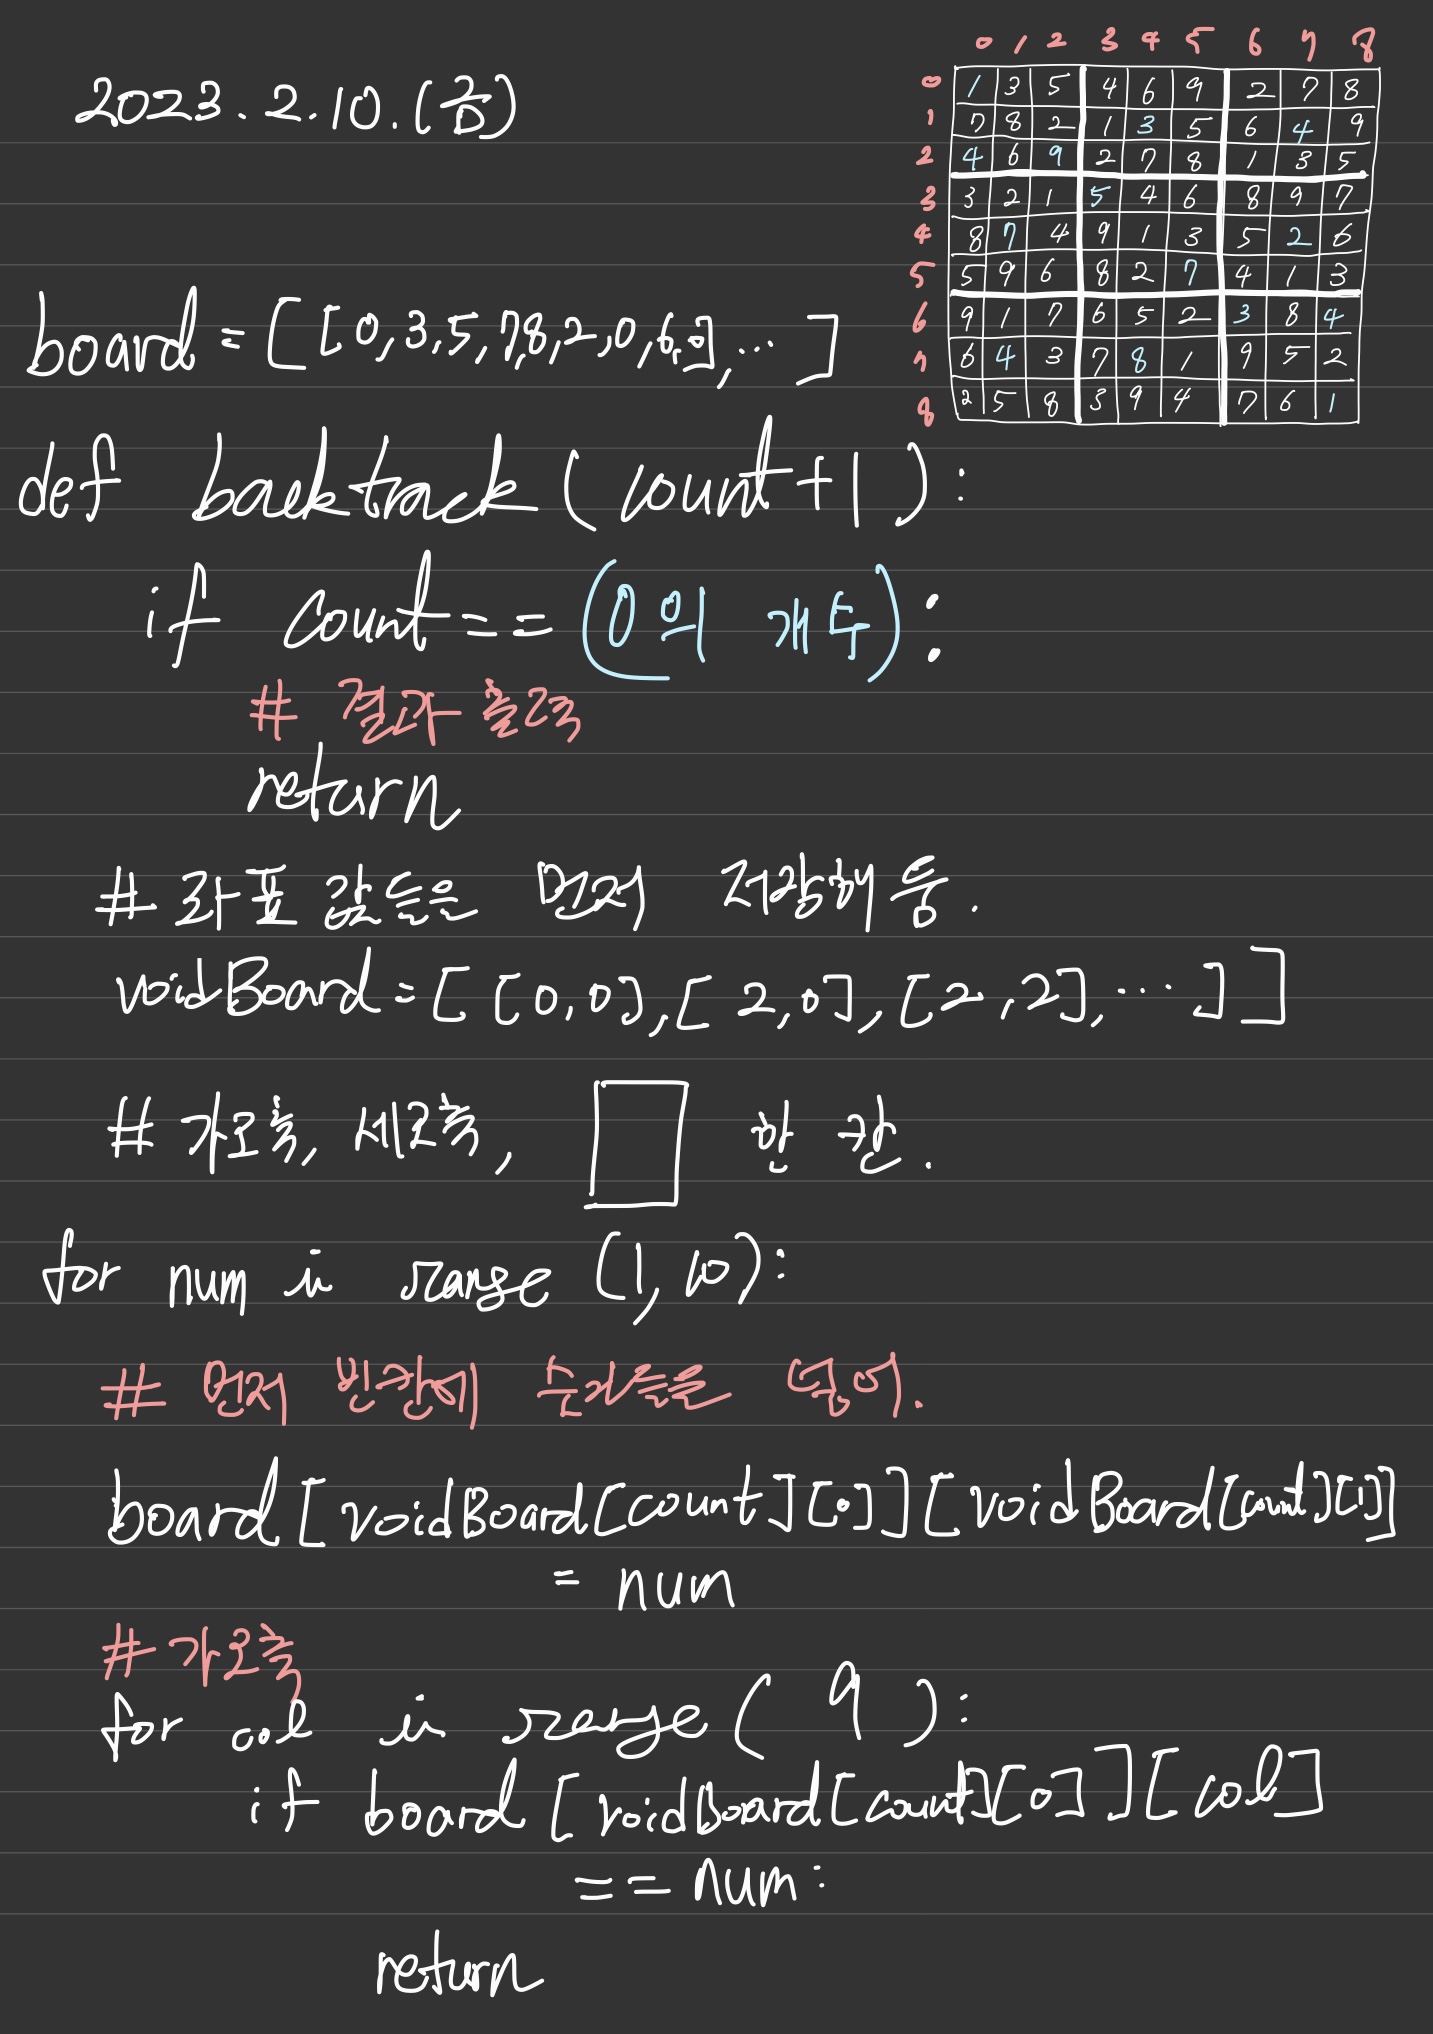 2023.2.10.(금)
0 1 2 3 4 5 6 7 8
0 1 3 5 4 6 9 2 7 8
1 7 8 2 1 3 5 6 4 9
2 4 6 9 2 7 8 1 3 5
3 3 2 1 5 4 6 8 9 7
4 8 7 4 9 1 3 5 2 6
5 5 9 6 8 2 7 4 1 3
6 9 1 7 6 5 2 3 8 4
7 6 4 3 7 8 1 9 5 2
8 2 5 8 3 9 4 7 6 1
board = [[0,3,5,7,8,2,0,6,0],...]
def backtrack (count+1):
if count == (0의 개수):
# 결과 출력
return
# 좌표 값들은 먼저 저장해 둠.
voidBoard = [[0,0],[2,0],[2,2],...]]
# 가로축, 세로축, 한 칸.
for num in range (1,10):
# 먼저 빈칸에 숫자들을 넣어.
board[voidBoard[count][0]][voidBoard[count][1]]
= num
# 가로축
for col in range(9):
if board[voidBoard[count][0]][col]
== num:
return